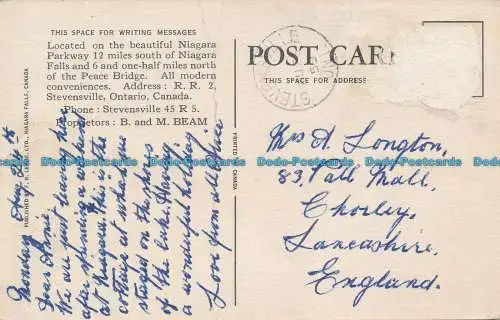 THIS SPACE FOR WRITING MESSAGES
Located on the beautiful Niagara
Parkway 12 miles south of Niagara
Falls and 6 and one-half miles north
of the Peace Bridge. All modern
conveniences. Address : R. R. 2,
Stevensville, Ontario, Canada.
Phone : Stevensville 45 R 5.
Proprietors : B. and M. BEAM
Monday Aug
Dear Annie,
We are just leaving here
after spending a
at Niagara. This is the
cottage at which we
stayed on the shores
of the Lake. Having
a wonderful holiday.
Love from all
PUBLISHED BY F. H. LESLIE, LTD., NIAGARA FALLS, CANADA
PRINTED IN CANADA
POST CAR
THIS SPACE FOR ADDRESS
STEVENSVILLE
Mrs A. Longton,
83, Pall Mall,
Chorley,
Lancashire,
England.
Bdb-Postcards